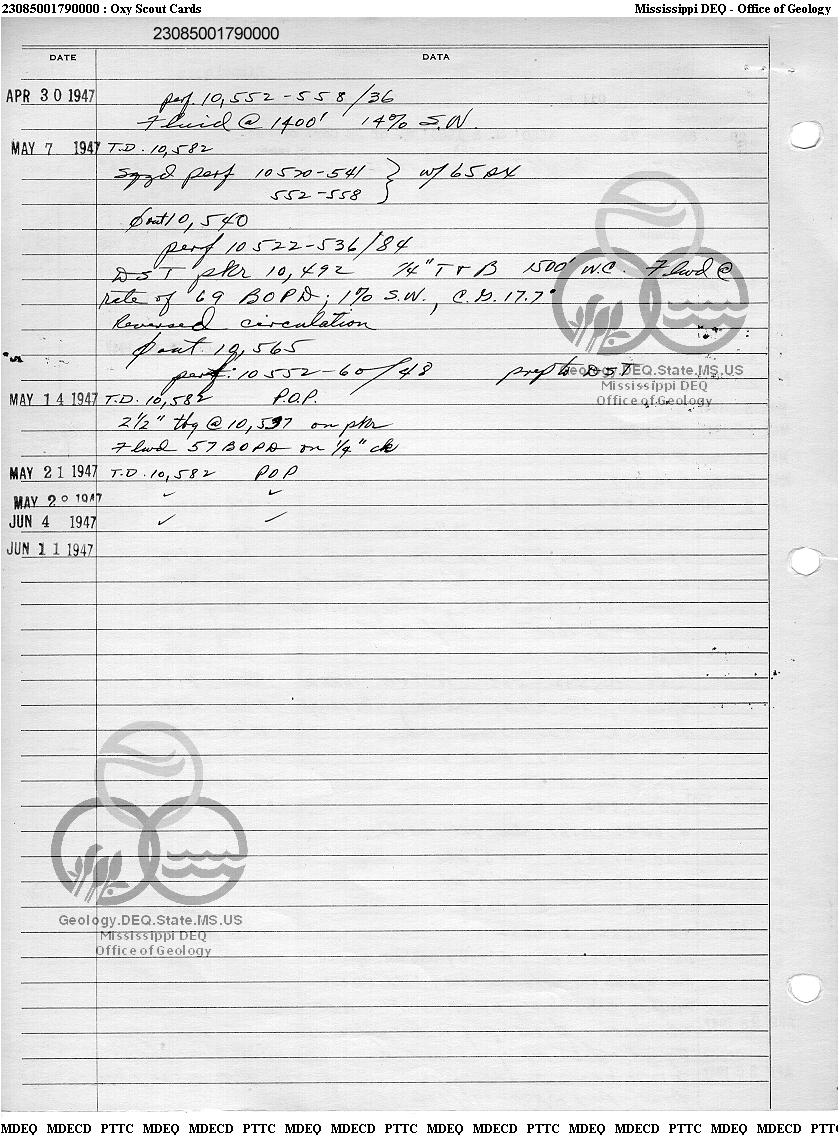 23085001790000 : Oxy Scout Cards Mississippi DEQ - Office of Geology
23085001790000
DATE DATA
APR 30 1947 perf 10,552-558/36
Fluid @ 1400' 14% S.W.
MAY 7 1947 T.D. 10,582
Sqzd perf 10520-541 } w/ 65 sx
552-558
out 10,540
perf 10522-536/84
DST pkr 10,492 1/4" T & B 1500' W.C. Flwd @
rate of 69 BOPD; 1% S.W., C.G. 17.7°
Reversed circulation
out 10,565
perf. 10552-60/48 prep to DST
Geology.DEQ.State.MS.US
Mississippi DEQ
Office of Geology
MAY 14 1947 T.D. 10,582 P.O.P.
2 1/2" tbg @ on pkr
Flwd 57 BOPD on 1/4" ck
MAY 21 1947 T.D. 10,582 POP
MAY 1947 ✓ ✓
JUN 4 1947 ✓ ✓
JUN 11 1947
Geology.DEQ.State.MS.US
Mississippi DEQ
Office of Geology
MDEQ MDECD PTTC MDEQ MDECD PTTC MDEQ MDECD PTTC MDEQ MDECD PTTC MDEQ MDECD PTTC MDEQ MDECD PTTC